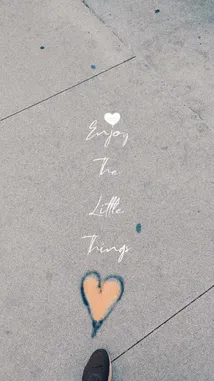 Enjoy
The
Little
Things